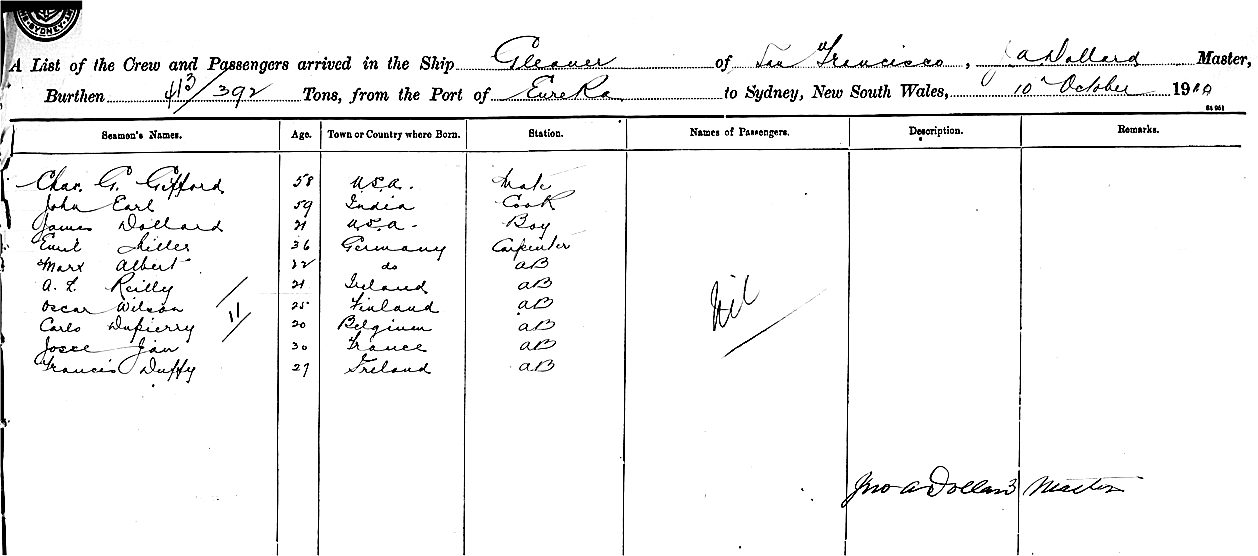 SYDNEY
A List of the Crew and Passengers arrived in the Ship Gleaner of San Francisco, J A Dollard Master,
Burthen 413/392 Tons, from the Port of Eureka to Sydney, New South Wales, 10 October 19
Seamen's Names. Age. Town or Country where Born. Station. Names of Passengers. Description. Remarks.
Chas. G. Gifford 58 U.S.A. Mate
John Earl 59 India Cook
James Dollard 21 U.S.A. Boy
Emil Miller 36 Germany Carpenter
Marx Albert 22 do aB
A. Reilly 21 Ireland aB
Oscar Wilson 25 Finland aB
11
Nil
Carlo Dupierry 20 Belgium aB
Josee Jan 30 France aB
Francis Duffy 27 Ireland aB
Jno A Dollard Master